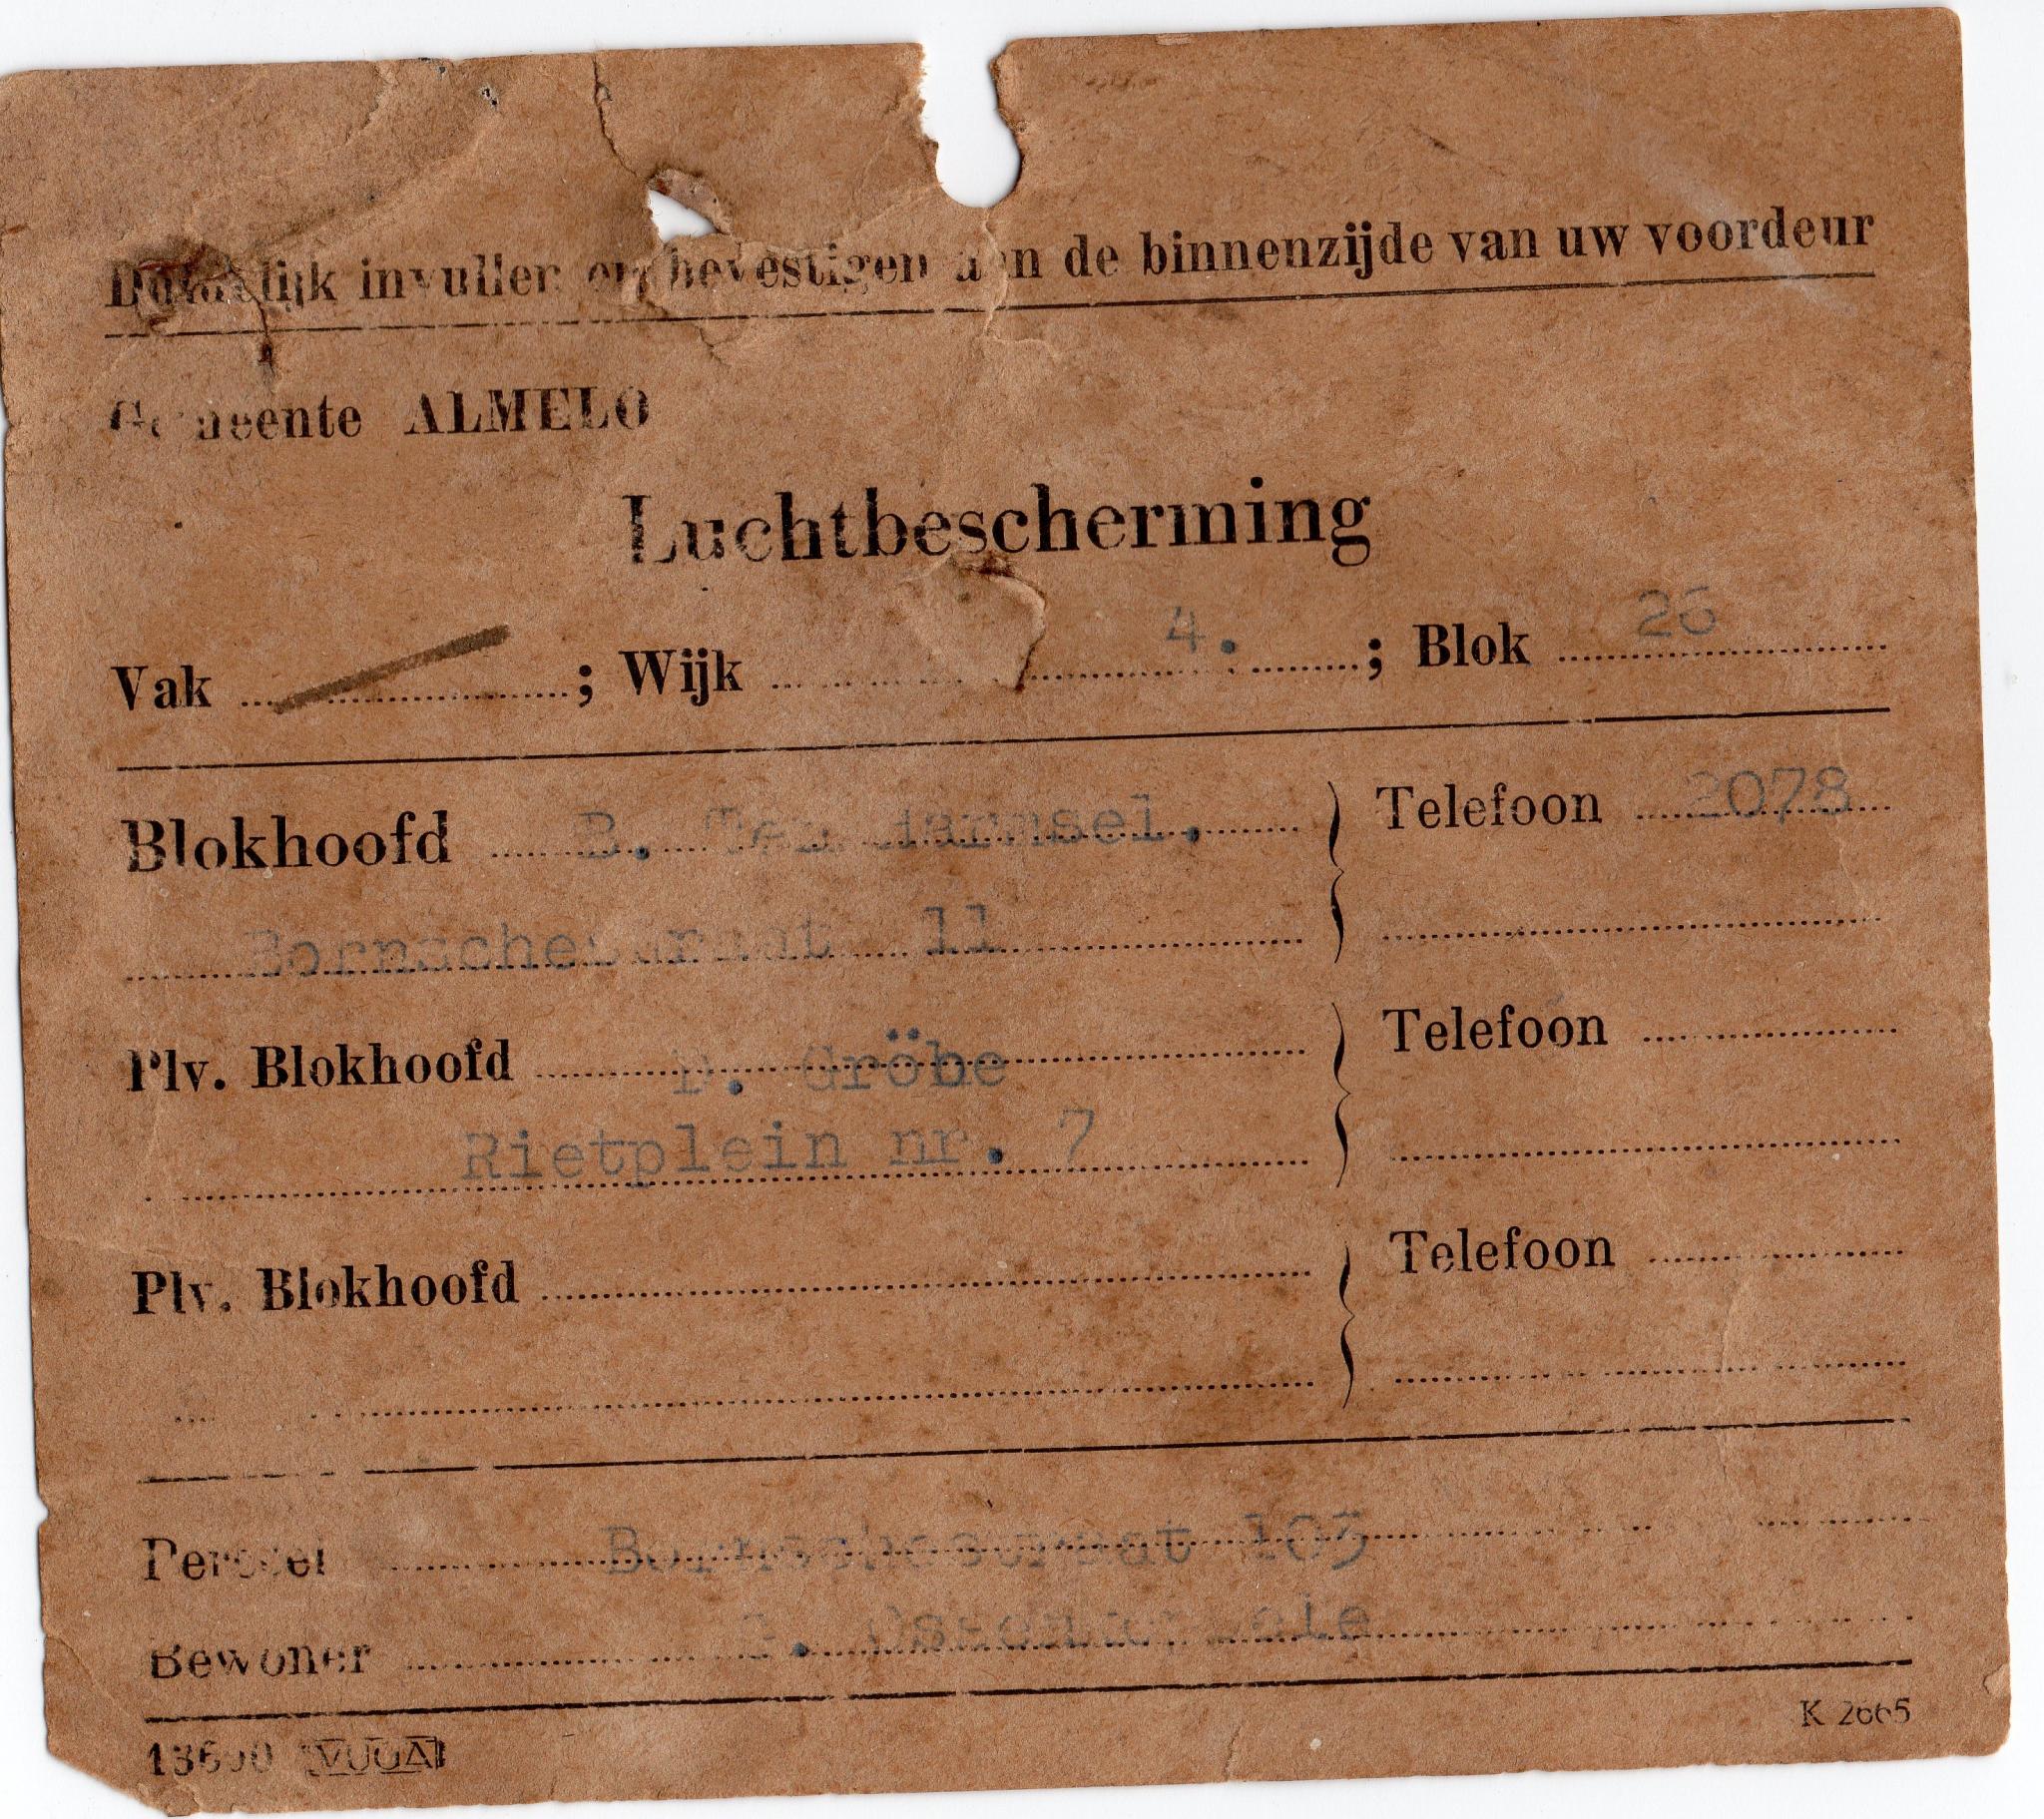 Duidelijk invullen en bevestigen aan de binnenzijde van uw voordeur
Gemeente ALMELO
Luchtbescherming
Vak ; Wijk 4. ; Blok 26
Blokhoofd B. Ten Telefoon 2078
Bornschestraat 11
Plv. Blokhoofd D. Gröbe Telefoon
Rietplein nr. 7
Plv. Blokhoofd Telefoon
Perceel Bornschestraat 103
Bewoner
K 2665
VUGA